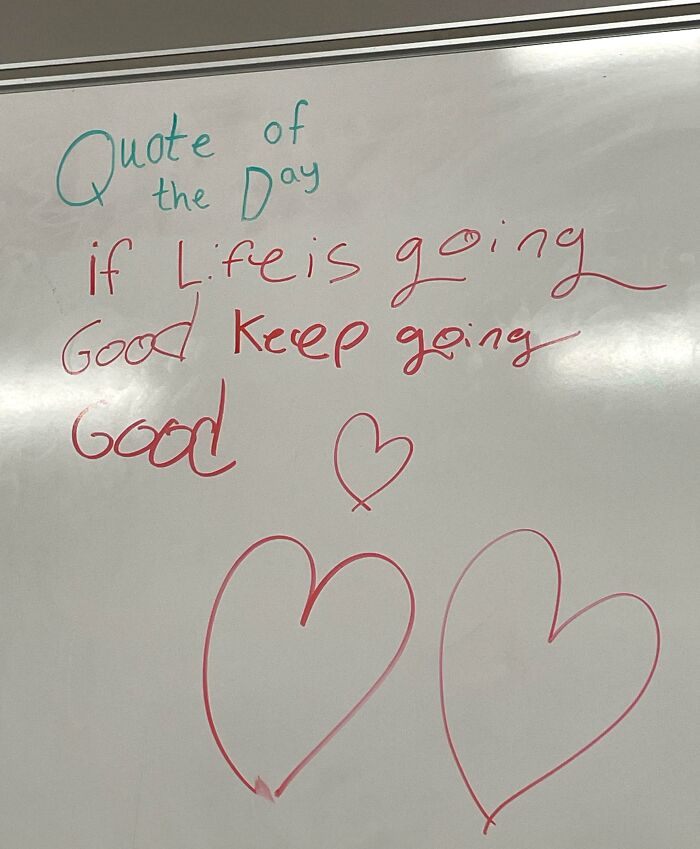 Quote of
the Day
if Life is going
Good Keep going
Good